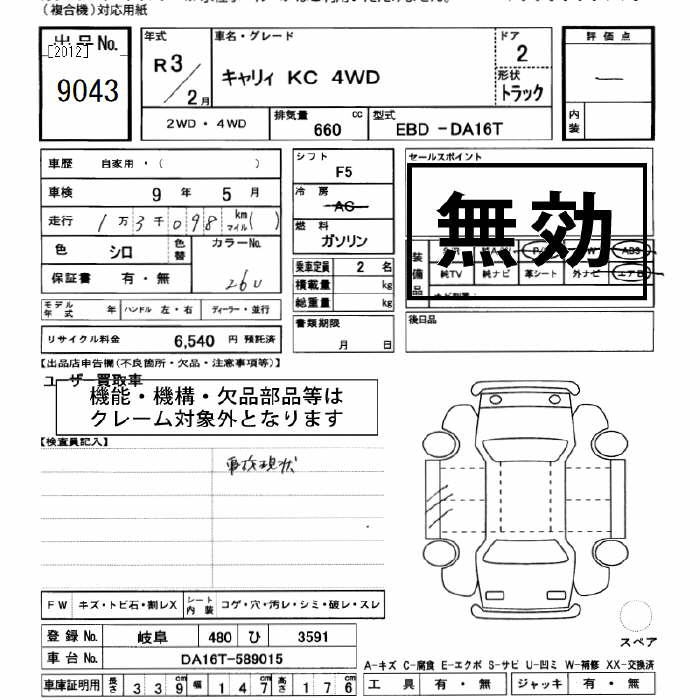 (複合機)対応用紙
出品No.
[2012]
9043
年式
R3/2月
車名・グレード
キャリィ KC 4WD
ドア
2
形状
トラック
評価点
内装
2WD・4WD
排気量 660 cc
型式 EBD-DA16T
車歴 自家用・( )
車検 9年 5月
走行 1万3千098 km マイル( )
色 シロ
色替
カラーNo.
26U
保証書 有・無
モデル年式 年 ハンドル 左・右 ディーラー・並行
リサイクル料金 6,540 円 預託済
シフト
F5
冷房
AC
燃料
ガソリン
乗車定員 2 名
積載量 kg
総重量 kg
書類期限
月 日
セールスポイント
無効
装備品
ABS
純TV 純ナビ 革シート 外ナビ エアB
後日品
【出品店申告欄(不良箇所・欠品・注意事項等)】
ユーザー買取車
機能・機構・欠品部品等は
クレーム対象外となります
【検査員記入】
事故現状
FW キズ・トビ石・割レX シート内装 コゲ・穴・汚レ・シミ・破レ・スレ
登録No. 岐阜 480 ひ 3591
車台No. DA16T-589015
車庫証明用 長さ 339cm 幅 147cm 高さ 176cm
スペア
A-キズ C-腐食 E-エクボ S-サビ U-凹ミ W-補修 XX-交換済
工具 有・無 ジャッキ 有・無